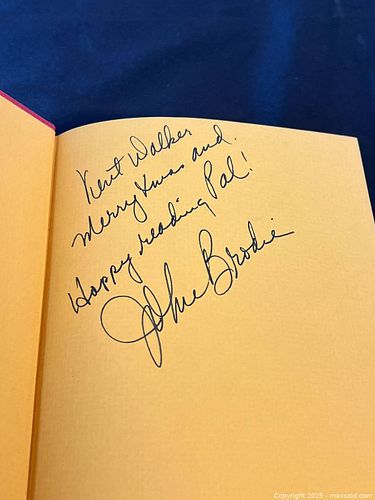 Kent Walker
Merry Xmas and
Happy reading Pal!
John Brodie
Copyright 2025 - maxsold.com